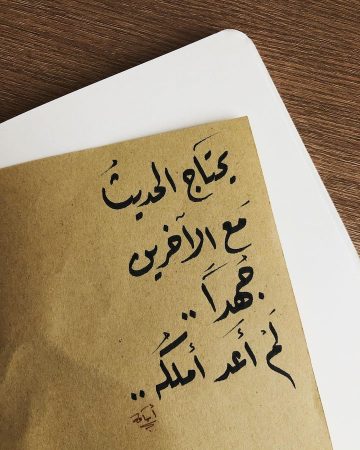 يحتَاج الحديثُ
مَع الآخرين
جُهداً ..
لَم أعَد أملكُه ..